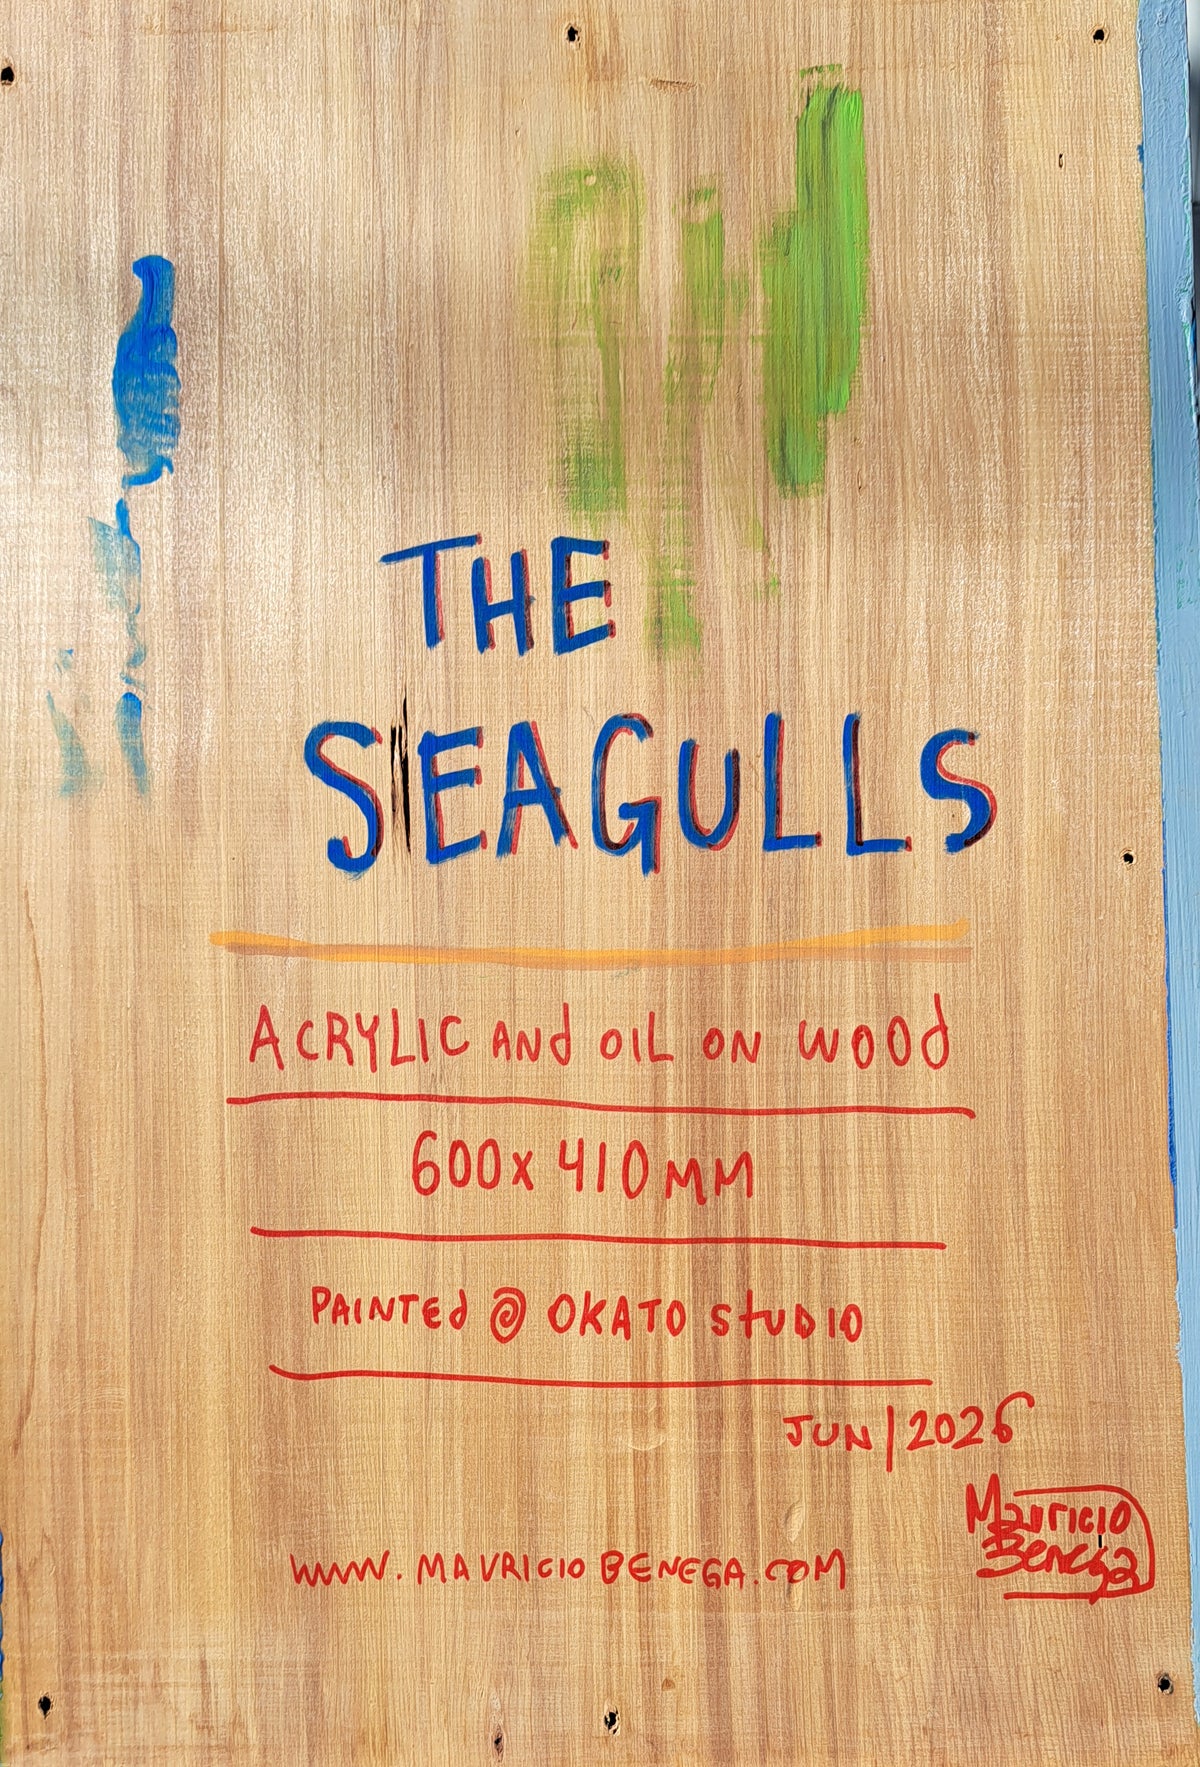 THE
SEAGULLS
ACRYLIC ANd OIL ON WOOd
600x 410MM
PAINTEd @ OKATO StUDIO
JUN/2026
MAURICIO
BENEGA
WWW.MAURICIOBENEGA.COM